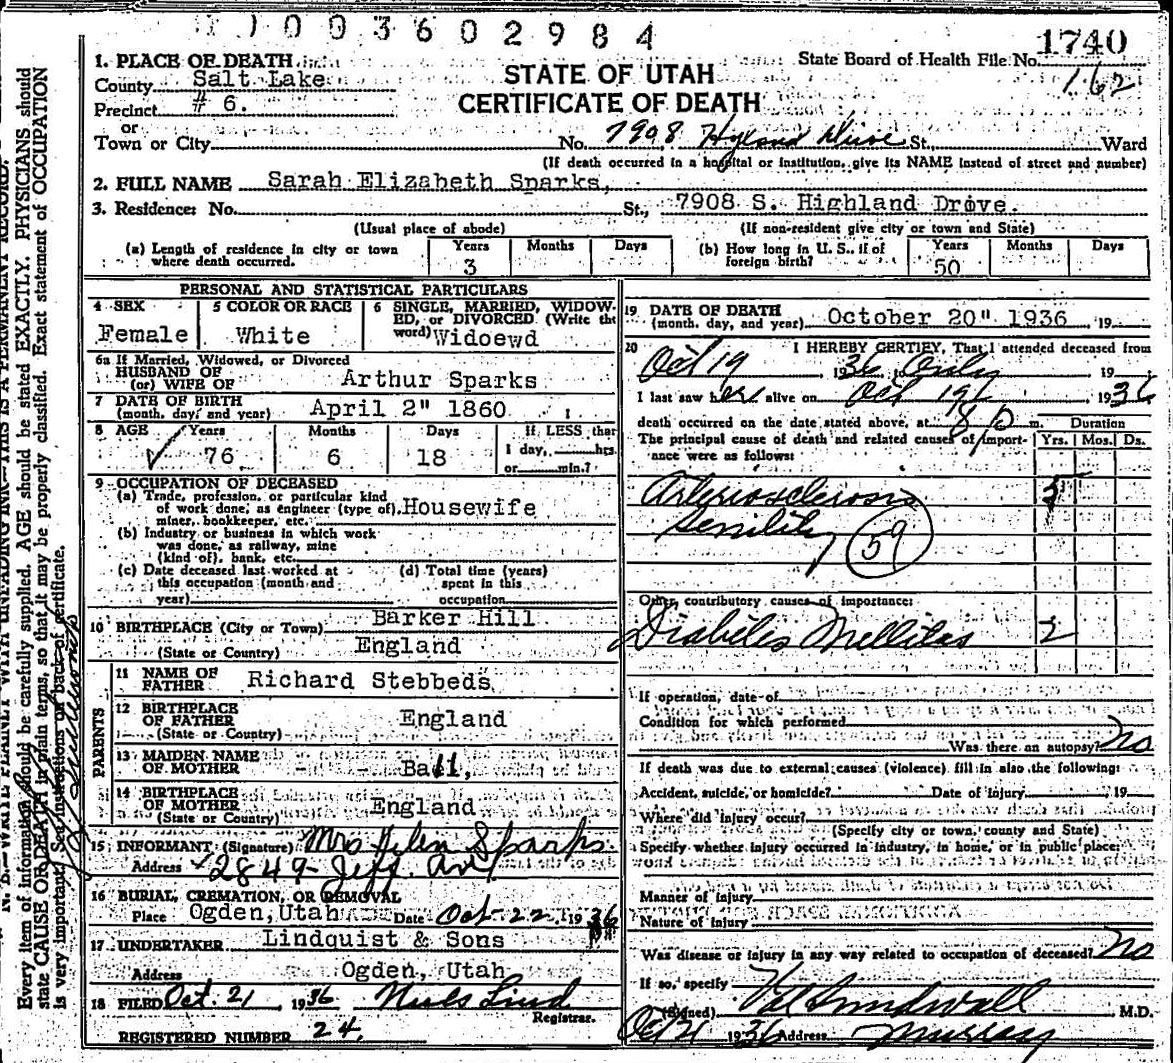 1003602984
1740
State Board of Health File No. 162
1. PLACE OF DEATH
County Salt Lake
Precinct # 6.
STATE OF UTAH
CERTIFICATE OF DEATH
or
Town or City No. 7908 Hyland Drive St., Ward
(If death occurred in a hospital or institution, give its NAME instead of street and number)
2. FULL NAME Sarah Elizabeth Sparks,
3. Residence: No. St., 7908 S. Highland Drove.
(Usual place of abode) (If non-resident give city or town and State)
(a) Length of residence in city or town where death occurred. Years 3 Months Days
(b) How long in U. S., if of foreign birth? Years 50 Months Days
PERSONAL AND STATISTICAL PARTICULARS
4 SEX Female
5 COLOR OR RACE White
6 SINGLE, MARRIED, WIDOW-
ED, or DIVORCED (Write the
word) Widoewd
6a If Married, Widowed, or Divorced
HUSBAND OF
(or) WIFE OF Arthur Sparks
7 DATE OF BIRTH
(month, day, and year) April 2" 1860
8 AGE Years 76 Months 6 Days 18
If LESS than
1 day, hrs.
or min.?
9 OCCUPATION OF DECEASED
(a) Trade, profession, or particular kind
of work done, as engineer (type of), Housewife
miner, bookkeeper, etc.
(b) Industry or business in which work
was done, as railway, mine
(kind of), bank, etc.
(c) Date deceased last worked at
this occupation (month and
year)
(d) Total time (years)
spent in this
occupation
10 BIRTHPLACE (City or Town) Barker Hill
(State or Country) England
PARENTS
11 NAME OF
FATHER Richard Stebbeds
12 BIRTHPLACE
OF FATHER England
(State or Country)
13 MAIDEN NAME
OF MOTHER Ball,
14 BIRTHPLACE
OF MOTHER England
(State or Country)
15 INFORMANT (Signature) Mrs Helen Sparks
Address 2849 Jeff. Av
16 BURIAL, CREMATION, OR REMOVAL
Place Ogden, Utah Date Oct-22 1936
17 UNDERTAKER Lindquist & Sons
Address Ogden, Utah
18 FILED Oct. 21 1936 Niels Lind
Registrar.
REGISTERED NUMBER 24.
19 DATE OF DEATH
(month, day, and year) October 20" 1936 , 19
20 I HEREBY CERTIFY, That I attended deceased from
Oct 19 1936 to Only 19
I last saw her alive on Oct 19th 1936
death occurred on the date stated above, at 8 p m. Duration
The principal cause of death and related causes of import-
ance were as follows: Yrs. Mos. Ds.
Arteriosclerosis 5
Senility 59
Other contributory causes of importance:
Diabetes Mellitas 2
If operation, date of
Condition for which performed
Was there an autopsy? No
If death was due to external causes (violence) fill in also the following:
Accident, suicide, or homicide? Date of injury 19
Where did injury occur?
(Specify city or town, county and State)
Specify whether injury occurred in industry, in home, or in public place:
Manner of injury
Nature of injury
Was disease or injury in any way related to occupation of deceased? No
If so, specify
(Signed) Val Sundwall M.D.
Oct 21 1936 Address Murray
N. B.—WRITE PLAINLY WITH UNFADING INK—THIS IS A PERMANENT RECORD.
Every item of information should be carefully supplied. AGE should be stated EXACTLY. PHYSICIANS should
state CAUSE OR DEATH in plain terms, so that it may be properly classified. Exact statement of OCCUPATION
is very important. See instructions on back of certificate.